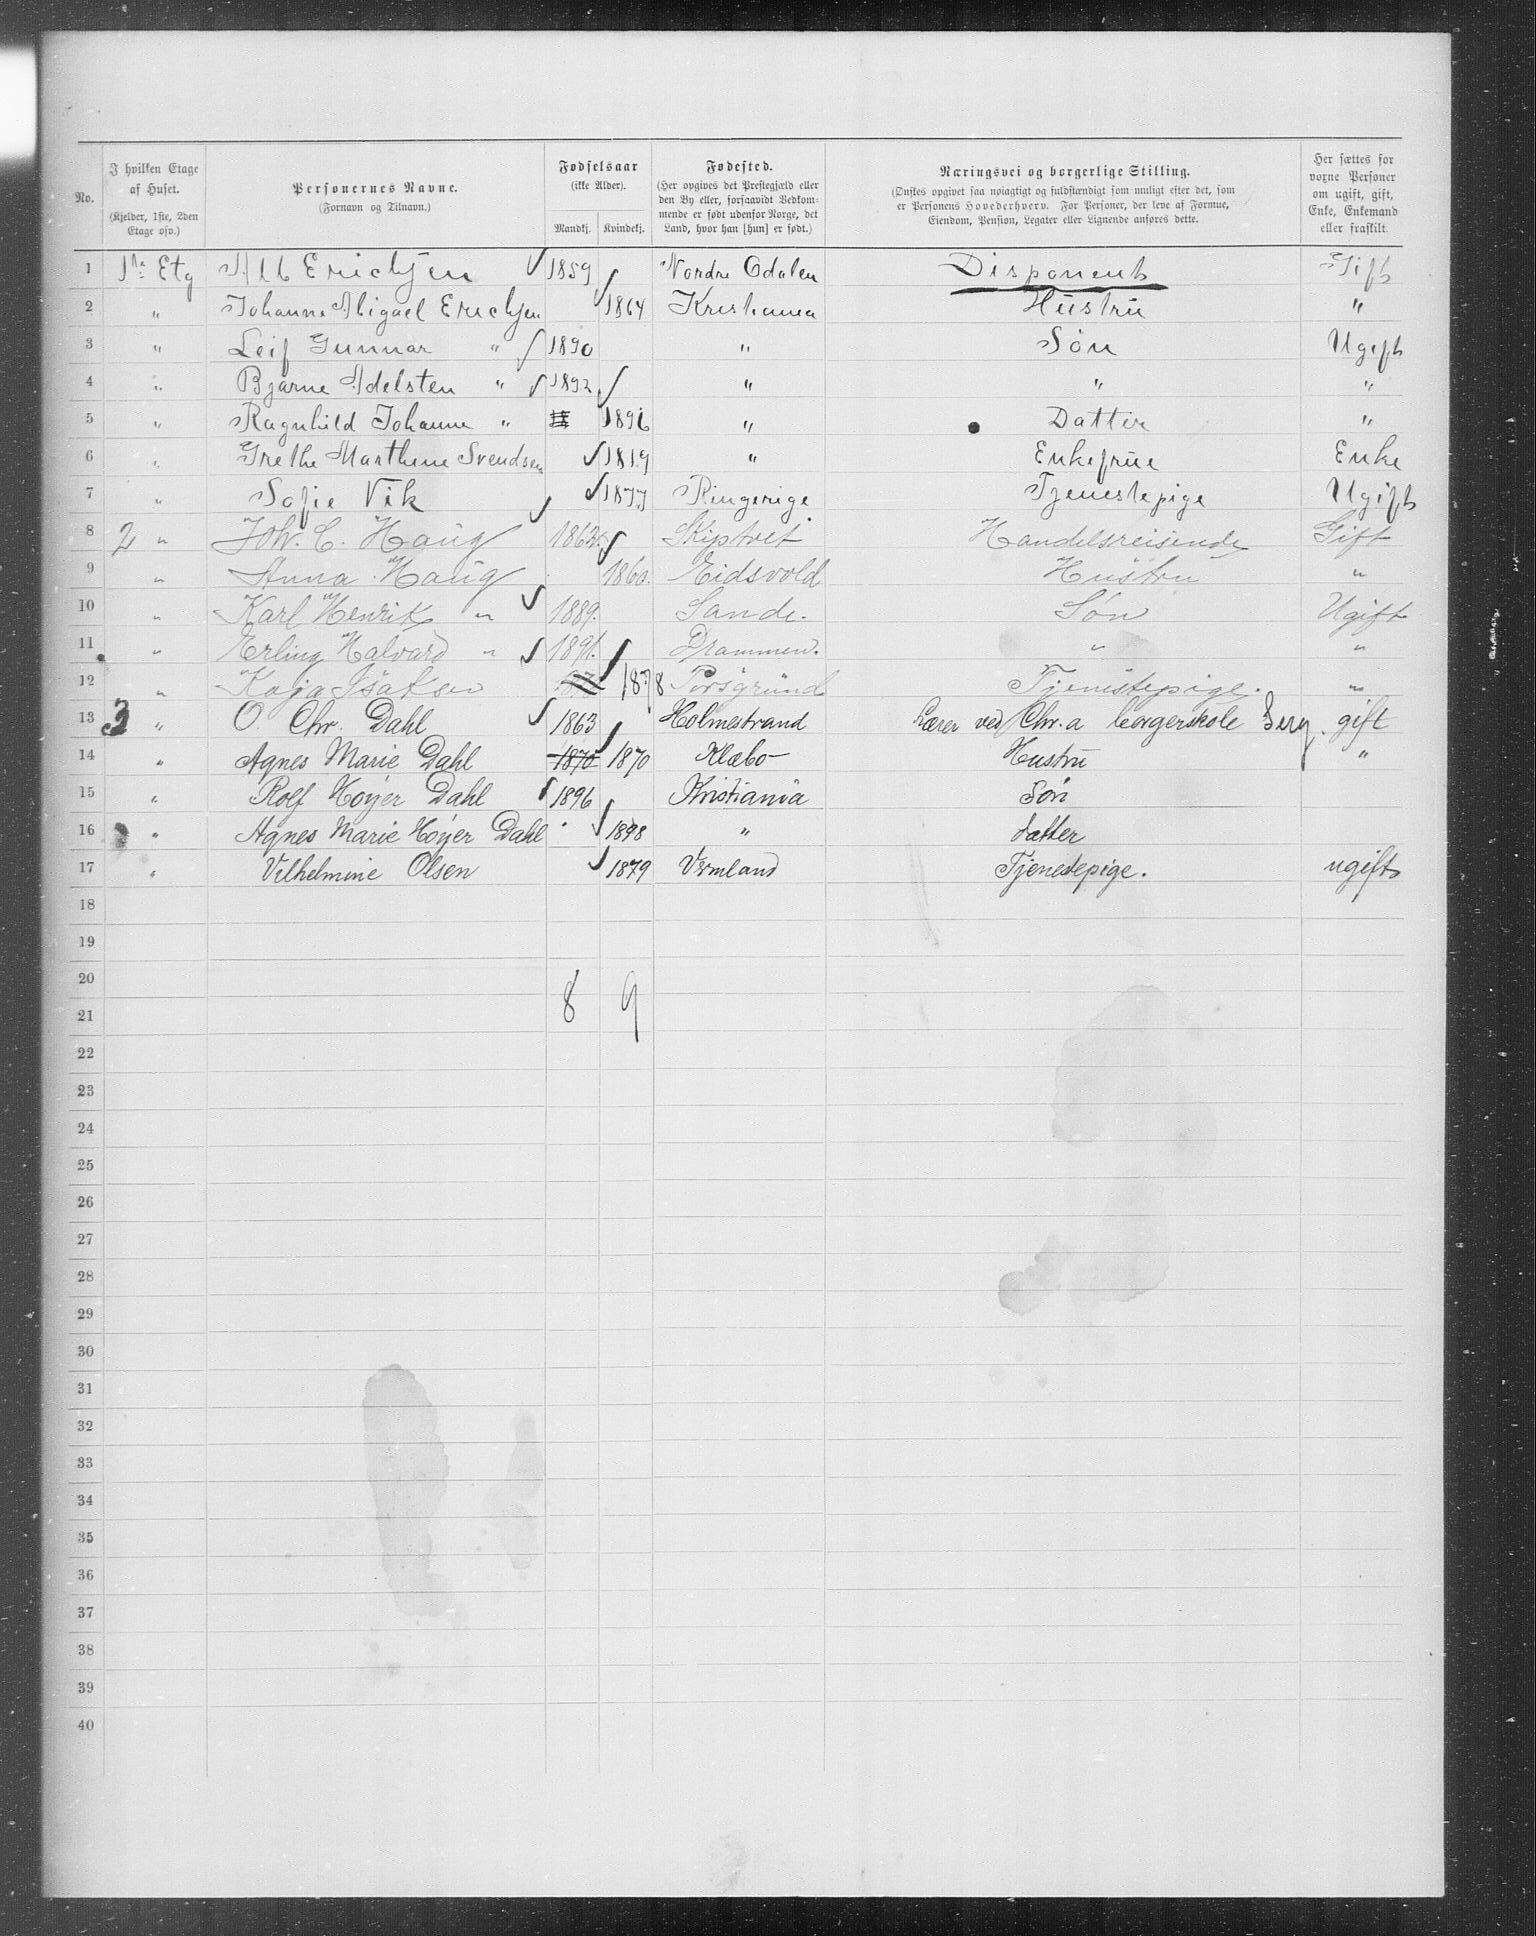 No. | I hvilken Etage af Huset. (Kjelder, 1ste, 2den Etage osv.) | Personernes Navne. (Fornavn og Tilnavn.) | Fødselsaar (ikke Alder). Mandkj. | Kvindekj. | Fødested. (Her opgives det Prestegjæld eller den By eller, forsaavidt Vedkommende er født udenfor Norge, det Land, hvor han [hun] er født.) | Næringsvei og borgerlige Stilling. (Ønskes opgivet saa nøiagtigt og fuldstændigt som muligt efter det, som er Personens Hovederhverv. For Personer, der leve af Formue, Eiendom, Pension, Legater eller Lignende anføres dette. | Her sættes for voxne Personer om ugift, gift, Enke, Enkemand eller fraskilt.
1 | 1ste Etg | Alb Erichsen | 1859 | | Nordre Odalen | Disponent | Gift
2 | " | Johanne Abigael Erichsen | | 1864 | Kristiania | Hustru | "
3 | " | Leif Gunnar " | 1890 | | " | Søn | Ugift
4 | " | Bjarne Adelsten " | 1892 | | " | " | "
5 | " | Ragnhild Johanne " | | 1896 | " | Datter | "
6 | " | Grethe Marthine Svendsen | | 1819 | " | Enkefrue | Enke
7 | " | Sofie Vik | | 1877 | Ringerige | Tjenestepige | Ugift
8 | 2 " | Joh. C. Haug | 1862. | | Skiptvet | Handelsreisende | Gift
9 | " | Anna Haug | | 1860. | Eidsvold | Hustru | "
10 | " | Karl Henrik " | 1889. | | Sande. | Søn | Ugift
11 | " | Erling Halvard " | 1891. | | Drammen. | " | "
12 | " | Kaja Isaksen | | 1878 | Porsgrund | Tjenestepige. | "
13 | 3 " | O. Chr. Dahl | 1863 | | Holmestrand | Lærer ved Chr.a borgerskole | gift
14 | " | Agnes Marie Dahl | 1870 | 1870 | Klæbo | Hustru | "
15 | " | Rolf Høyer Dahl | 1896 | | Kristiania | Søn
16 | " | Agnes Marie Høyer Dahl | | 1898 | " | Datter
17 | " | Vilhelmine Olsen | | 1879 | Vermland | Tjenestepige. | ugift
18
19
20
8 9
21
22
23
24
25
26
27
28
29
30
31
32
33
34
35
36
37
38
39
40